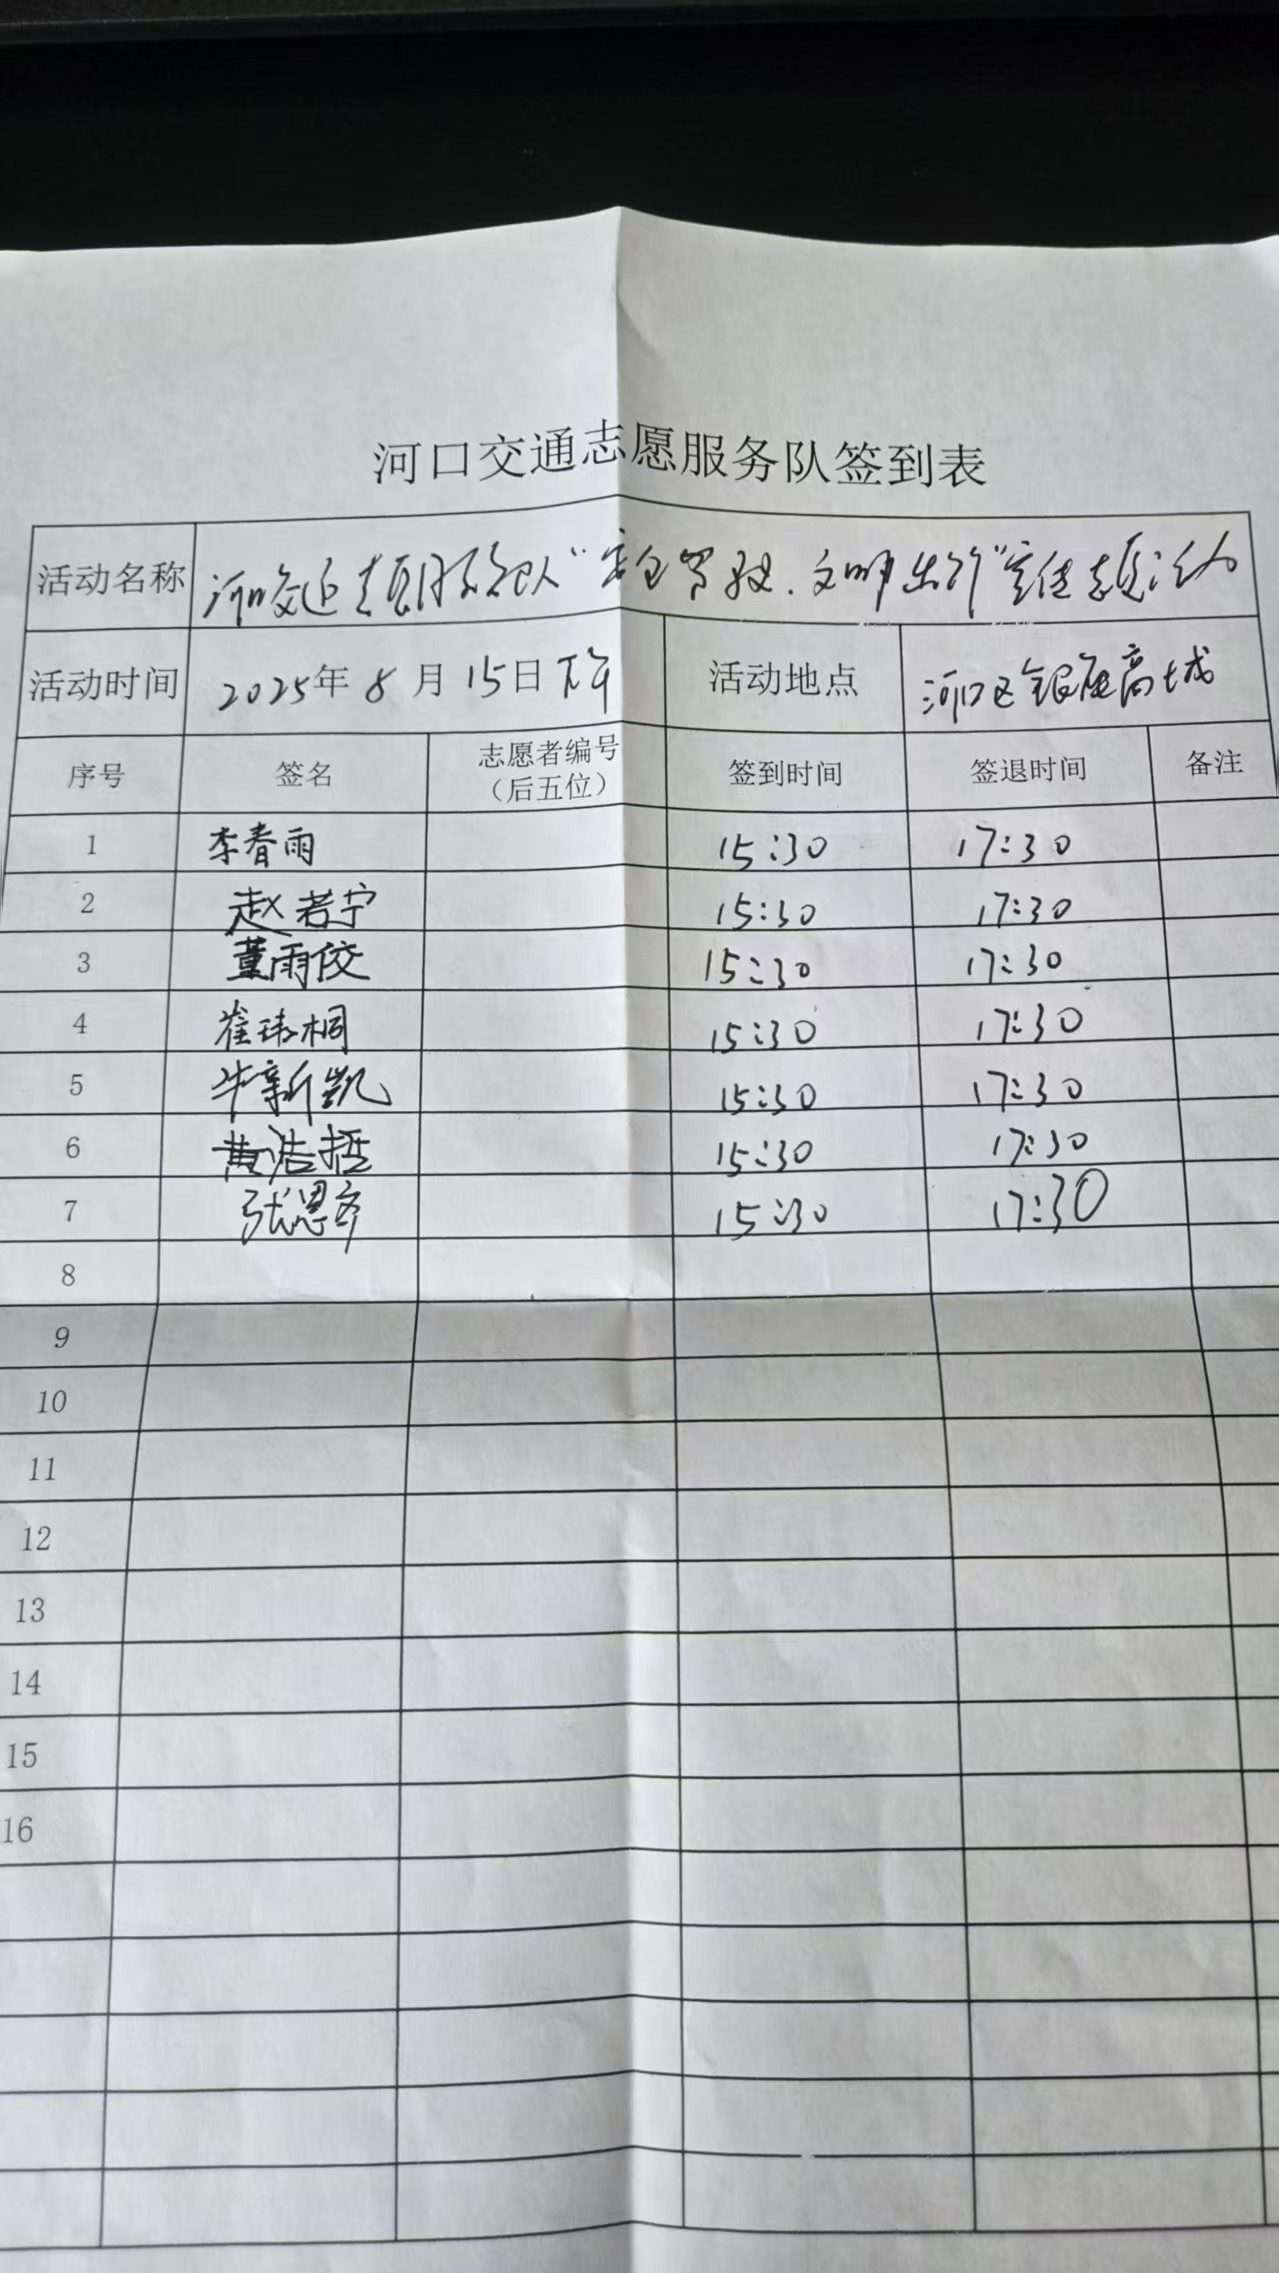 河口交通志愿服务队签到表
活动名称 河口交通志愿服务队“安全驾驶、文明出行”宣传志愿活动
活动时间 2025年8月15日下午 活动地点 河口区银座商城
序号 签名 志愿者编号（后五位） 签到时间 签退时间 备注
1 李春雨 15:30 17:30
2 赵若宁 15:30 17:30
3 董雨佼 15:30 17:30
4 崔玮桐 15:30 17:30
5 牛新凯 15:30 17:30
6 黄浩哲 15:30 17:30
7 张恩齐 15:30 17:30
8
9
10
11
12
13
14
15
16